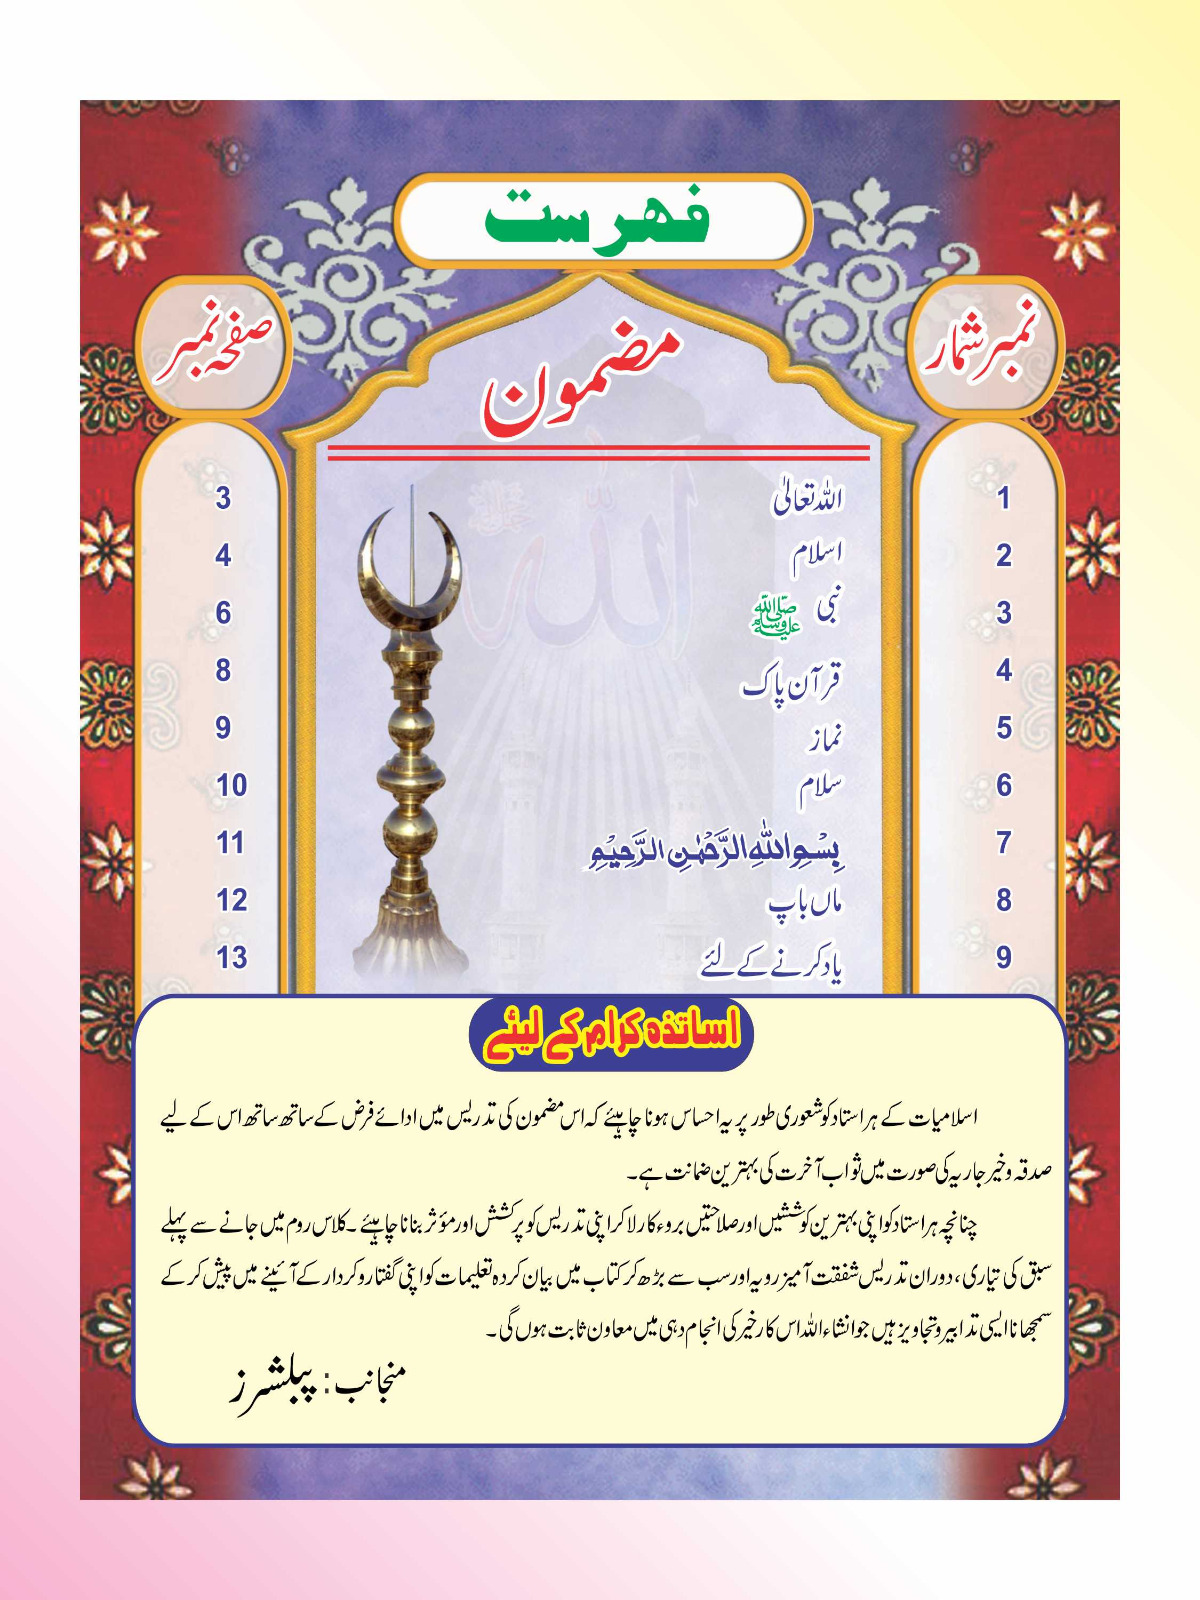 فہرست
نمبر شمار مضمون صفحہ نمبر
1 اللہ تعالیٰ 3
2 اسلام 4
3 نبی ﷺ 6
4 قرآن پاک 8
5 نماز 9
6 سلام 10
7 بِسْمِ اللّٰهِ الرَّحْمٰنِ الرَّحِيْمِ 11
8 ماں باپ 12
9 یاد کرنے کے لئے 13
اساتذہ کرام کے لیئے
اسلامیات کے ہر استاد کو شعوری طور پر یہ احساس ہونا چاہیئے کہ اس مضمون کی تدریس میں ادائے فرض کے ساتھ ساتھ اس کے لیے
صدقہ و خیر جاریہ کی صورت میں ثواب آخرت کی بہترین ضمانت ہے۔
چنانچہ ہر استاد کو اپنی بہترین کوششیں اور صلاحتیں بروءکار لا کر اپنی تدریس کو پرکشش اور مؤثر بنانا چاہیئے ۔ کلاس روم میں جانے سے پہلے
سبق کی تیاری، دوران تدریس شفقت آمیز رویہ اور سب سے بڑھ کر کتاب میں بیان کردہ تعلیمات کو اپنی گفتار و کردار کے آئینے میں پیش کر کے
سمجھانا ایسی تدابیر و تجاویز ہیں جو انشاء اللہ اس کار خیر کی انجام دہی میں معاون ثابت ہوں گی ۔
منجانب : پبلشرز
الله